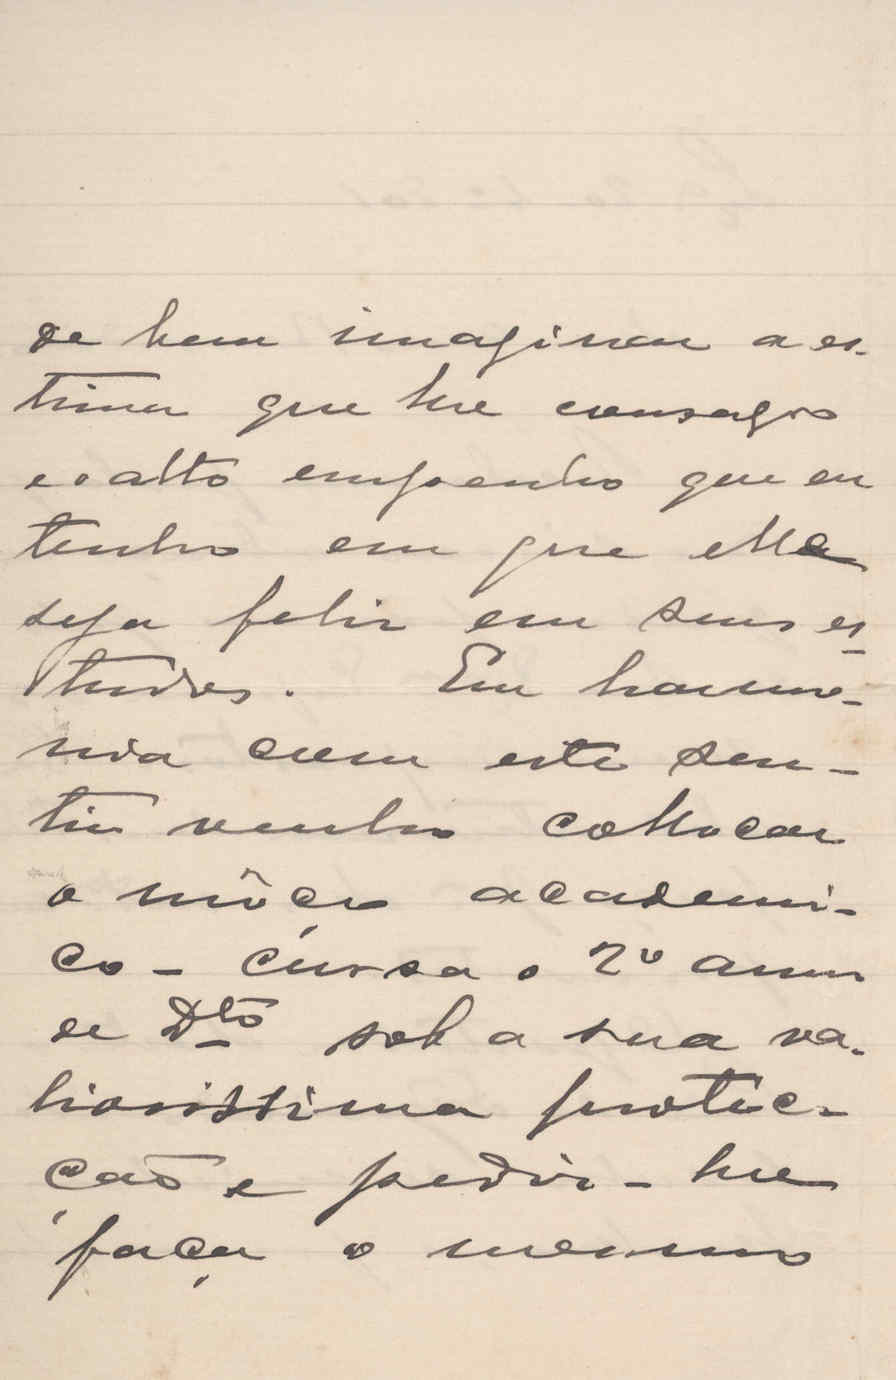 de bem imaginar a es-
tima que lhe consagro
e o alto empenho que eu
tenho em que elle
seja feliz em seus es-
tudos. Em harmo-
nia com este sen-
tir venho collocar
o môço academi-
co – cursa o 2º anno
de Dto sob a sua va-
liosissima protec-
ção e pedir-lhe
faça o mesmo